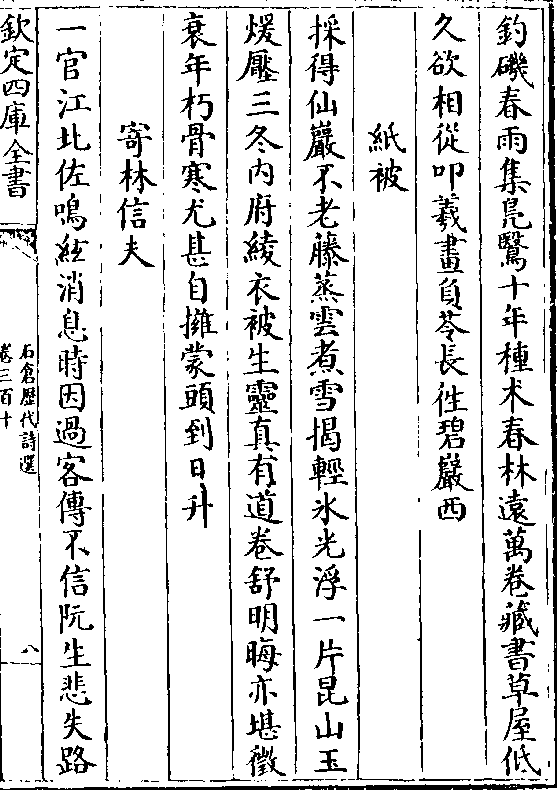 釣磯春雨集鳧鷖十年種术春林遠萬卷藏書草屋低
久欲相從叩羲畫負苓長往碧巖西
紙被
採得仙巖不老藤蒸雲煮雪揭輕氷光浮一片昆山玉
煖壓三冬内府綾衣被生靈真有道卷舒明晦亦堪徵
衰年朽骨寒尤甚自擁蒙頭到日升
寄林信夫
一官江北佐鳴絃消息時因過客傳不信阮生悲失路
欽定四庫全書
石倉歴代詩選
卷三百十
八